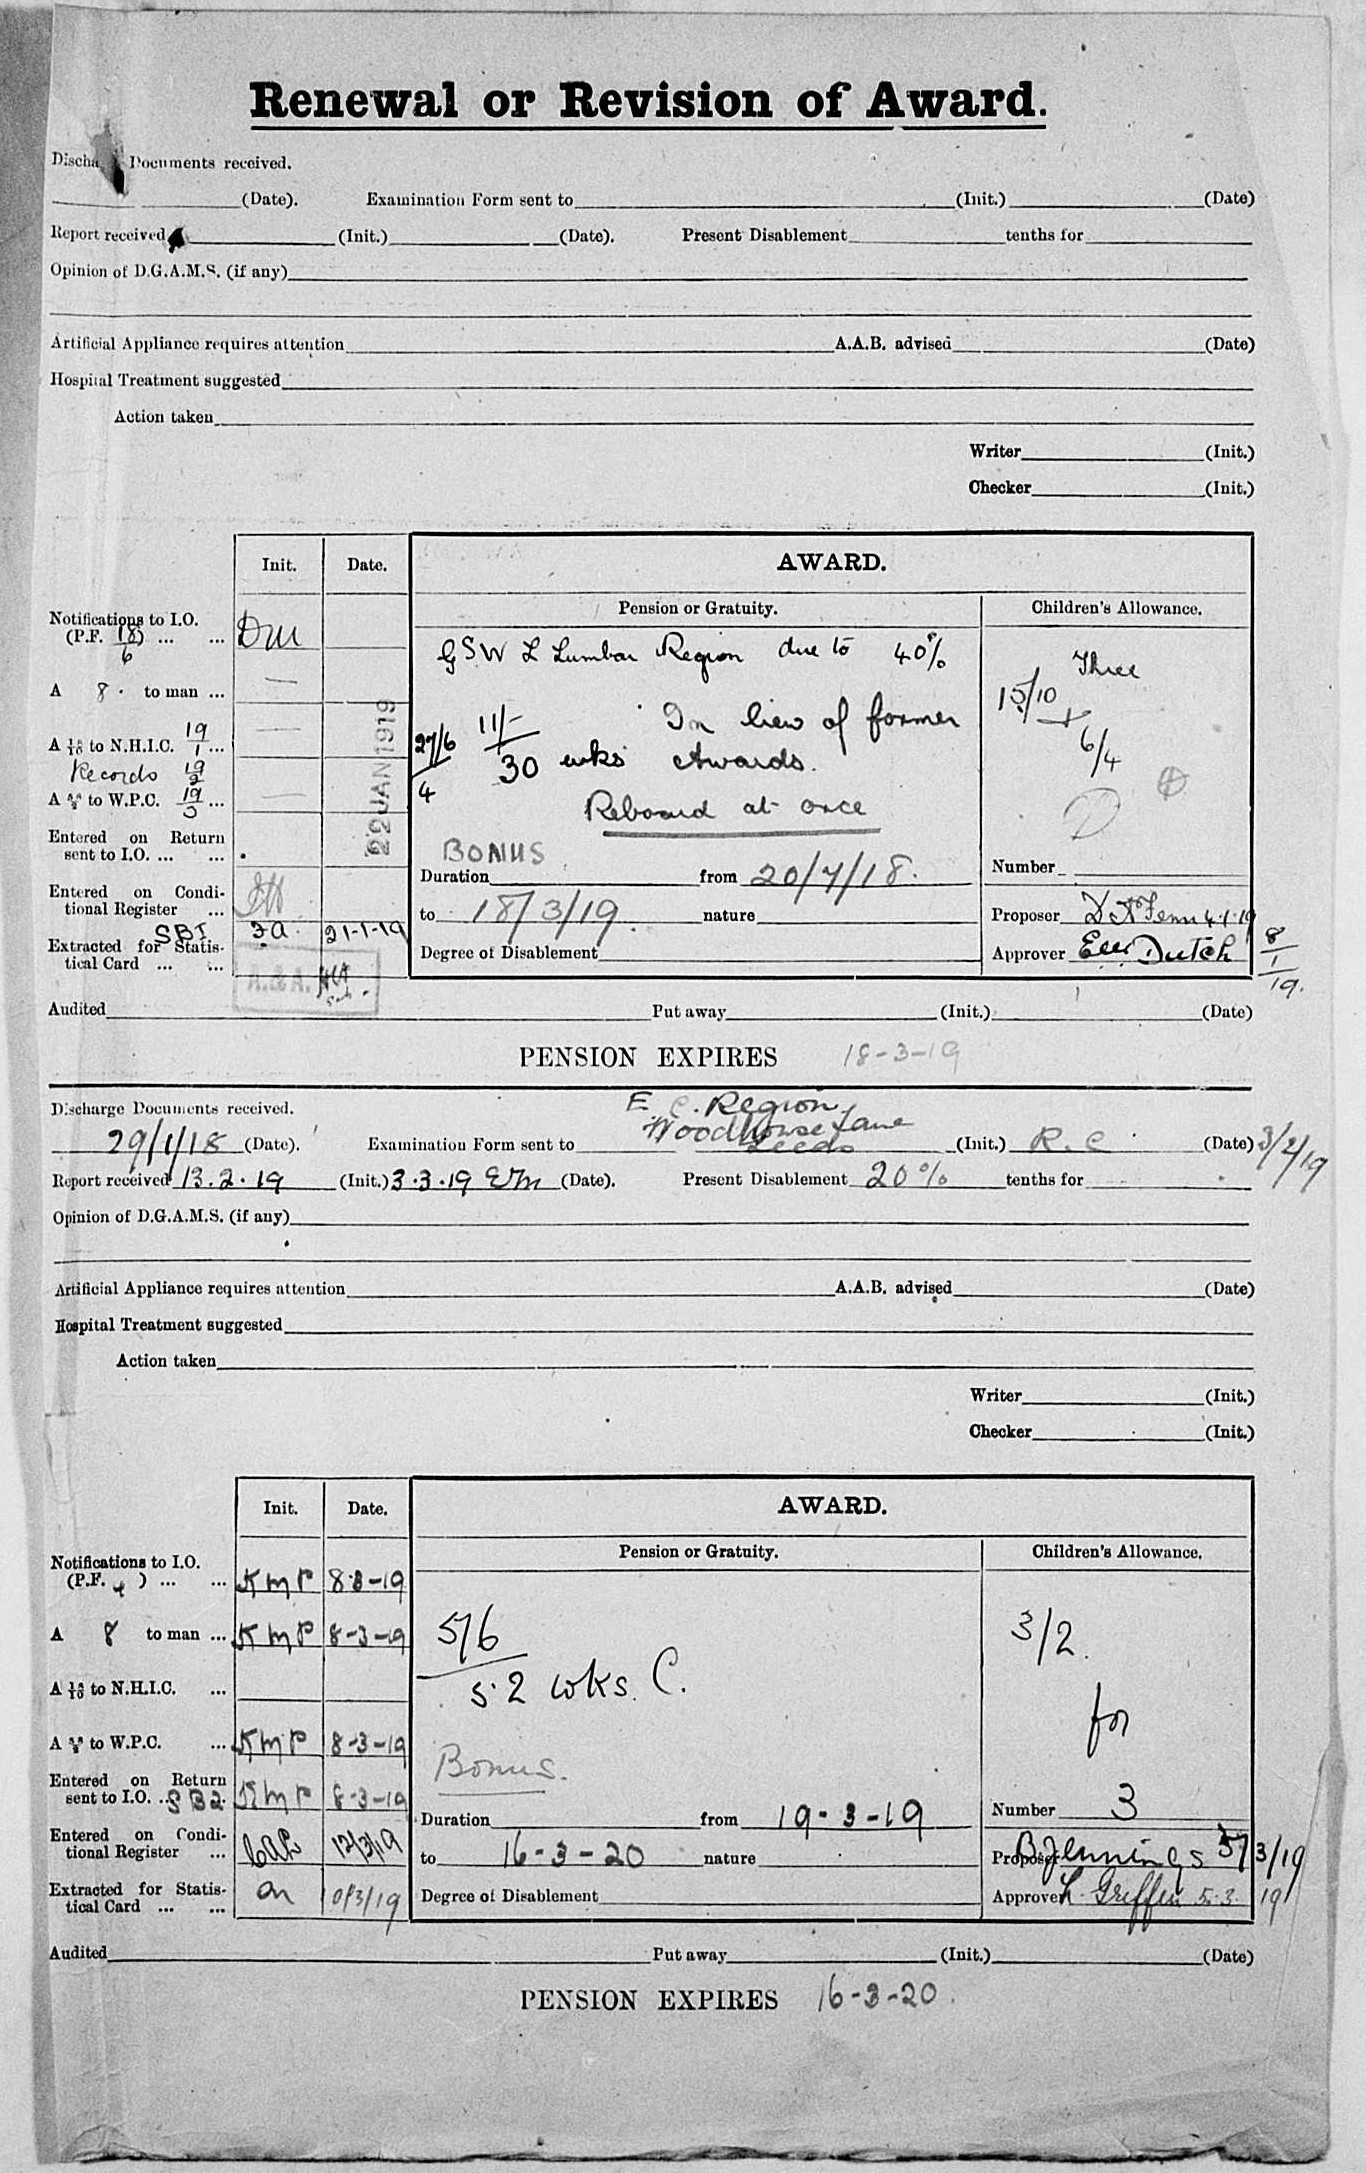 Renewal or Revision of Award.
Discha Documents received.
(Date). Examination Form sent to (Init.) (Date)
Report received (Init.) (Date). Present Disablement tenths for
Opinion of D.G.A.M.S. (if any)
Artificial Appliance requires attention A.A.B. advised (Date)
Hospital Treatment suggested
Action taken
Writer (Init.)
Checker (Init.)
Init. Date. AWARD.
Pension or Gratuity. Children's Allowance.
Notifications to I.O.
(P.F. 18/6) ... ... DM
GSW L Lumbar Region due to 40%
Three
15/10
A 8. to man ...
27/6
4
11/-
30 wks
In lieu of former
Awards.
6/4
A to N.H.I.C. 19/1 ...
Records 19/2
A to W.P.C. 19 ...
22 JAN 1919
Reboard at once
Entered on Return
sent to I.O. ... ...
BONUS
Duration from 20/7/18.
Number
Entered on Condi-
tional Register ...
to 18/3/19. nature
Proposer 4.1.19
SBI
Extracted for Statis-
tical Card ... ...
21-1-19
Degree of Disablement
Approver Dutch 8/1/19.
A.&A.
Audited Put away (Init.) (Date)
PENSION EXPIRES 18-3-19
Discharge Documents received.
E. C. Region
Woodhouse Lane
Leeds
29/1/18 (Date). Examination Form sent to (Init.) R.C (Date) 3/2/19
Report received 13.2.19 (Init.) 3.3.19 (Date). Present Disablement 20% tenths for
Opinion of D.G.A.M.S. (if any)
Artificial Appliance requires attention A.A.B. advised (Date)
Hospital Treatment suggested
Action taken
Writer (Init.)
Checker (Init.)
Init. Date. AWARD.
Pension or Gratuity. Children's Allowance.
Notifications to I.O.
(P.F. 4 ) ... ... KMP 8-3-19
A 8 to man ... KMP 8-3-19
5/6
52 wks. C.
3/2.
for
A to N.H.I.C. ...
A to W.P.C. ... KMP 8-3-19
Bonus.
Entered on Return
sent to I.O. .. SB2. KMP 8-3-19
Duration from 19-3-19
Number 3
Entered on Condi-
tional Register ... 12/3/19
to 16-3-20 nature
Proposer B Jennings 5/3/19
Extracted for Statis-
tical Card ... ... 10/3/19
Degree of Disablement
Approver L. Griffin 5.3.19
Audited Put away (Init.) (Date)
PENSION EXPIRES 16-3-20.